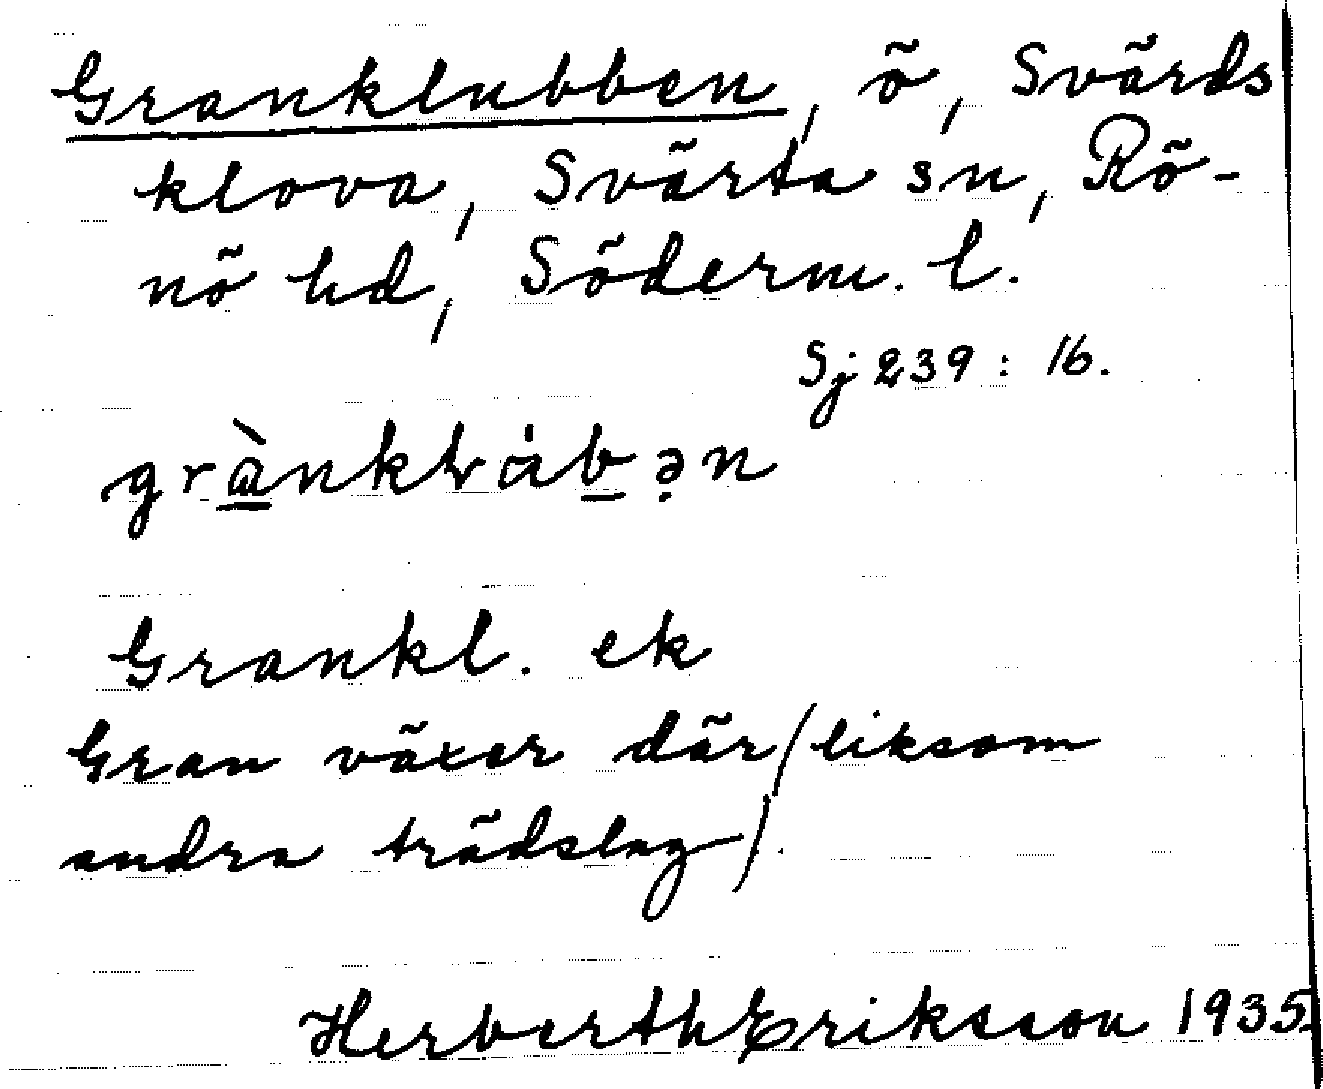 Granklubben, ö, Svärds
klova, Svärta sn, Rö-
nö hd, Söderm. l.
Sj 239: 16.
Grankl. ek
Gran växer där (liksom
andra trädslag).
Herberth Eriksson 1935.